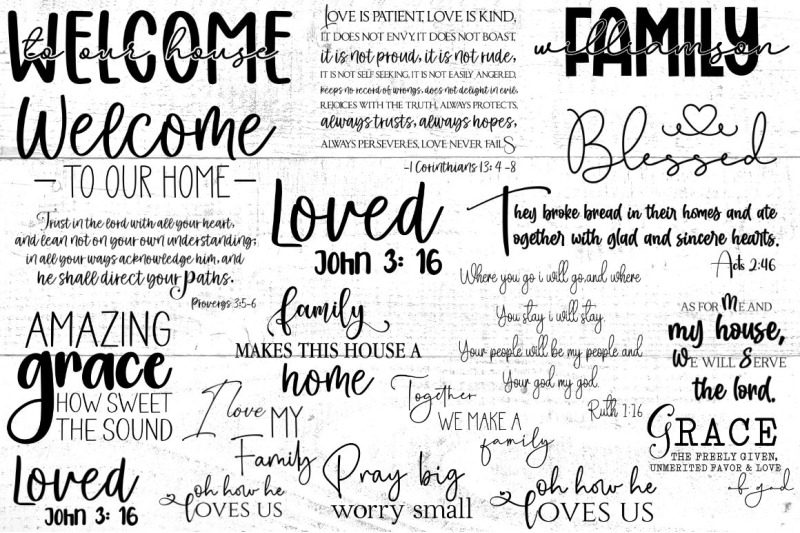 WELCOME
to our house
LOVE IS PATIENT, LOVE IS KIND,
IT DOES NOT ENVY, IT DOES NOT BOAST,
it is not proud, it is not rude,
IT IS NOT SELF SEEKING, IT IS NOT EASILY ANGERED,
keeps no record of wrongs, does not delight in evil,
REJOICES WITH THE TRUTH, ALWAYS PROTECTS,
always trusts, always hopes,
ALWAYS PERSEVERES, LOVE NEVER FAILS
-1 Corinthians 13: 4 -8
FAMILY
williamson
Welcome
- TO OUR HOME -
Blessed
Trust in the lord with all your heart,
and lean not on your own understanding;
in all your ways acknowledge him, and
he shall direct your Paths.
Provergs 3:5-6
Loved
John 3: 16
They broke bread in their homes and ate
together with glad and sincere hearts.
Acts 2:46
Where you go i will go,and where
You stay i will stay.
Your people will be my people and
Your god my god.
Ruth 1:16
family
MAKES THIS HOUSE A
home
AS FOR ME AND
my house,
WE WILL SERVE
the lord.
AMAZING
grace
HOW SWEET
THE SOUND
I love MY
Family
Together
WE MAKE A
family
GRACE
THE FREELY GIVEN,
UNMERITED FAVOR & LOVE
of god
Loved
John 3: 16
oh how he
LOVES US
Pray big
worry small
oh how he
LOVES US